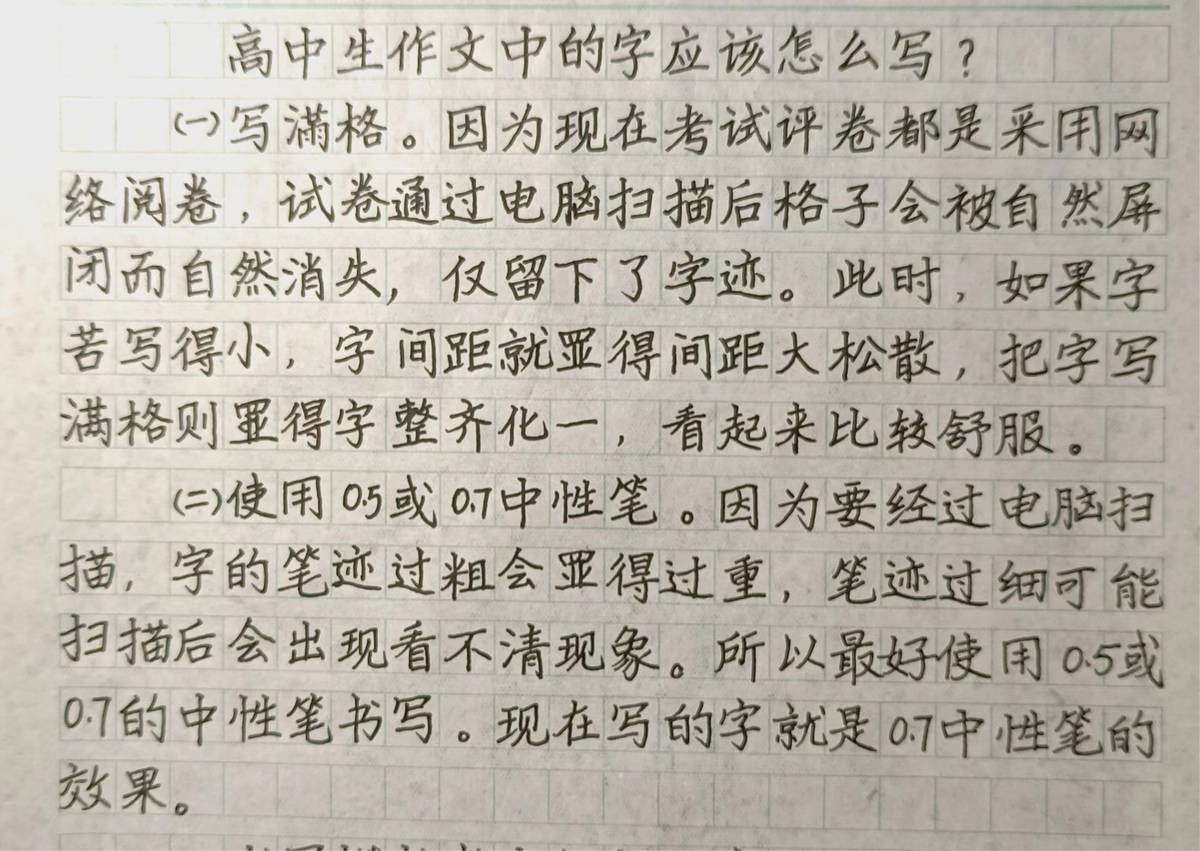 高中生作文中的字应该怎么写？
㈠写满格。因为现在考试评卷都是采用网
络阅卷，试卷通过电脑扫描后格子会被自然屏
闭而自然消失，仅留下了字迹。此时，如果字
苦写得小，字间距就显得间距大松散，把字写
满格则显得字整齐化一，看起来比较舒服。
㈡使用0.5或0.7中性笔。因为要经过电脑扫
描，字的笔迹过粗会显得过重，笔迹过细可能
扫描后会出现看不清现象。所以最好使用0.5或
0.7的中性笔书写。现在写的字就是0.7中性笔的
效果。